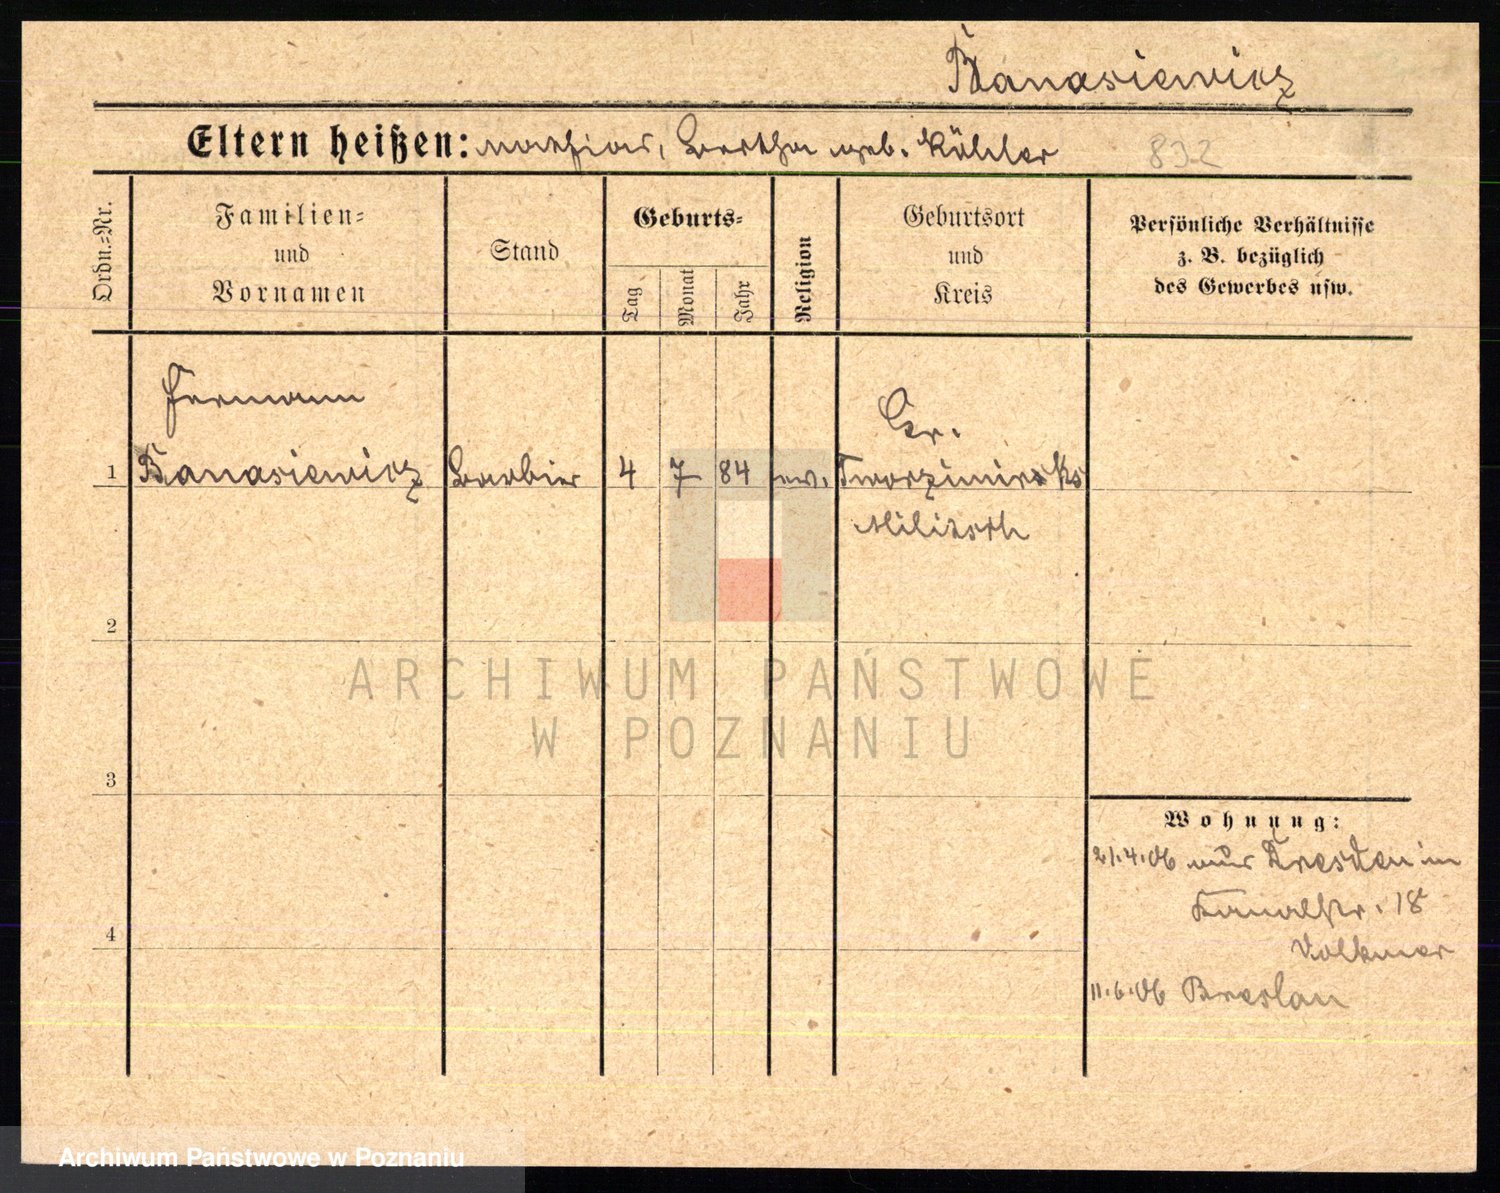 Banasiewicz
Eltern heißen: Mathias, Bertha geb. Köhler
832
Ordn.-Nr.
Familien-
und
Vornamen
Stand
Geburts-
Tag
Monat
Jahr
Religion
Geburtsort
und
Kreis
Persönliche Verhältnisse
z. B. bezüglich
des Gewerbes usw.
Hermann
Gr.
1 Banasiewicz Barbier 4 7 84 ev. Tworzimirke Ks
Militsch
2
3
4
Wohnung:
21.4.06 aus Dresden in
Kanalstr. 18
Volkmer
11.6.06 Breslau
ARCHIWUM PAŃSTWOWE
W POZNANIU
Archiwum Państwowe w Poznaniu